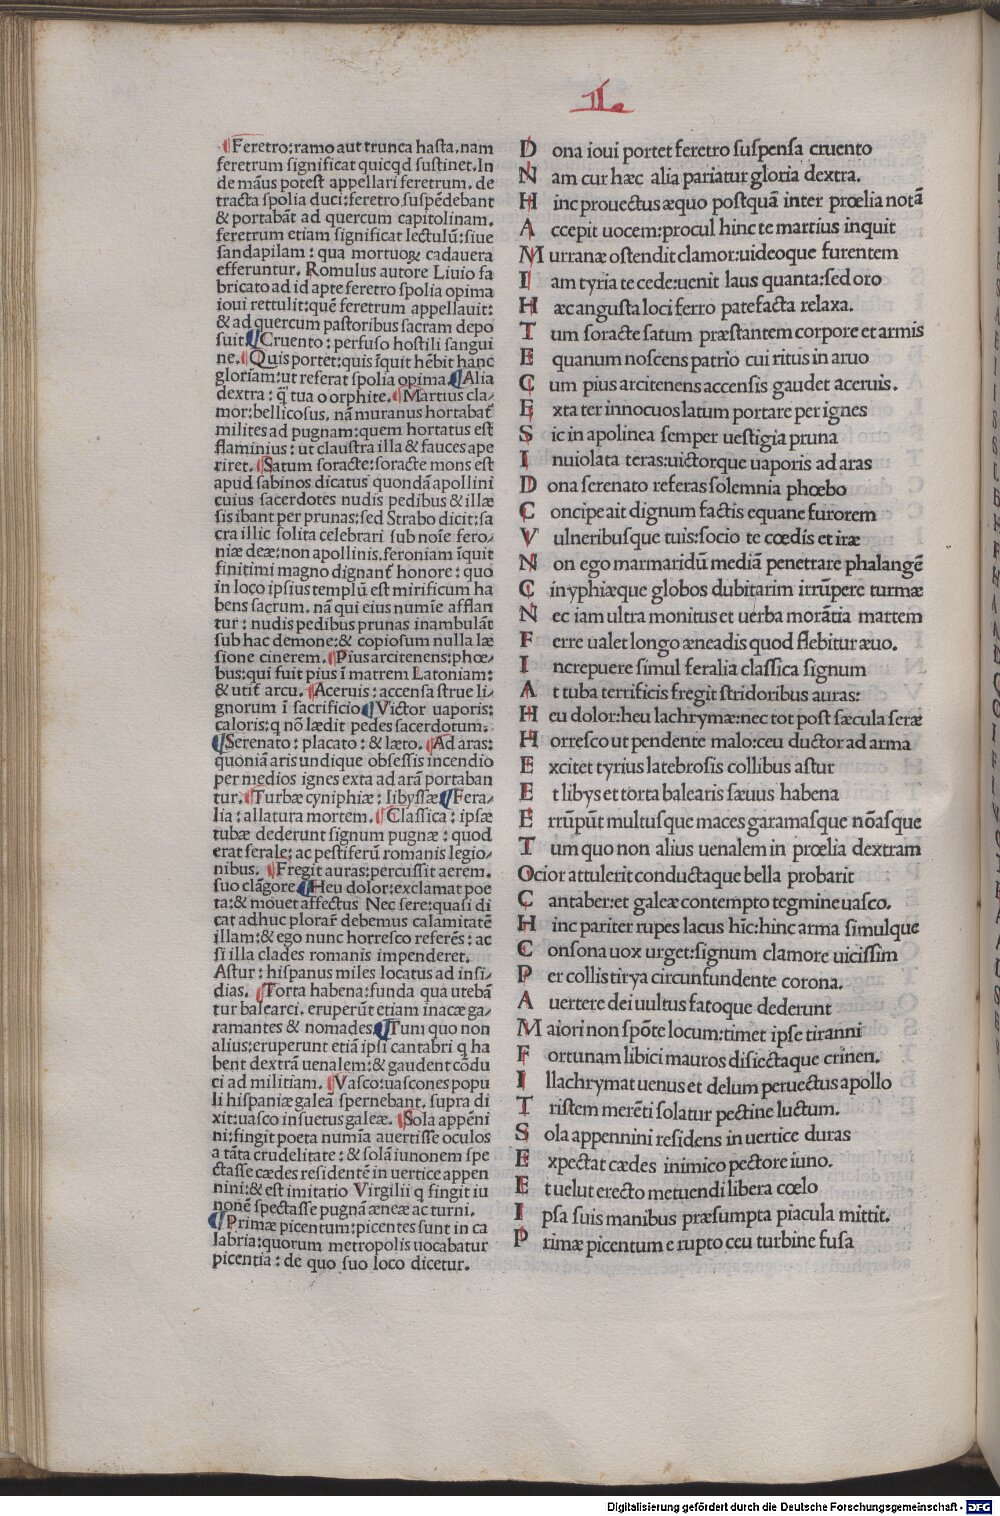 II.
¶Feretro:ramo aut trunca hasta.nam
feretrum ſignificat quicqd ſuſtinet.In
de mãus poteſt appellari feretrum. de
tracta ſpolia duci:feretro ſuſpẽdebant
& portabãt ad quercum capitolinam.
feretrum etiam ſignificat lectulũ:ſiue
ſandapilam: qua mortuoꝝ cadauera
efferuntur. Romulus autore Liuio fa
bricato ad id apte feretro ſpolia opima
ioui rettulit:quẽ feretrum appellauit:
& ad quercum paſtoribus ſacram depo
ſuit.¶Cruento: perfuſo hoſtili ſangui
ne.¶Quis portet:quis ĩquit hẽbit hanc
gloriam:ut referat ſpolia opima.¶Alia
dextra: q̃ tua o orphite.¶Martius cla/
mor:bellicoſus. nã muranus hortabat̃
milites ad pugnam:quem hortatus eſt
flaminius: ut clauſtra illa & fauces ape
riret.¶Satum ſoracte:ſoracte mons eſt
apud ſabinos dicatus quondã apollini
cuius ſacerdotes nudis pedibus & illæ
ſis ibant per prunas:ſed Strabo dicit:ſa
cra illic ſolita celebrari ſub noĩe fero/
niæ deæ:non apollinis.feroniam ĩquit
finitimi magno dignant̃ honore: quo
in loco ipſius templũ eſt mirificum ha
bens ſacrum. nã qui eius numĩe afflan
tur: nudis pedibus prunas inambulãt
ſub hac demone:& copioſum nulla læ
ſione cinerem.¶Pius arcitenens:phœ/
bus:qui fuit pius ĩ matrem Latoniam:
& utit̃ arcu.¶Aceruis: accenſa ſtrue li/
gnorum ĩ ſacrificio¶Victor uaporis:
caloris:q nõ lædit pedes ſacerdotum:
¶Serenato: placato: & læto.¶Ad aras:
quoniã aris undique obſeſſis incendio
per medios ignes exta ad arã portaban
tur.¶Turbæ cyniphiæ: libyſſæ¶Fera/
lia: allatura mortem.¶Claſſica: ipſæ
tubæ dederunt ſignum pugnæ: quod
erat ferale: ac peſtiferũ romanis legio/
nibus. ¶Fregit auras:percuſſit aerem.
ſuo clãgore.¶Heu dolor:exclamat poe
ta:& mouet affectus Nec ſere:quaſi di
cat adhuc plorar̃ debemus calamitatẽ
illam:& ego nunc horreſco referẽs: ac
ſi illa clades romanis impenderet.
Aſtur: hiſpanus miles locatus ad inſi/
dias. ¶Torta habena:funda qua utebã
tur balearci. eruperũt etiam inacæ ga/
ramantes & nomades.¶Tum quo non
alius:eruperunt etiã ipſi cantabri q ha
bent dextrã uenalem:& gaudent cõdu
ci ad militiam. ¶Vaſco:uaſcones popu
li hiſpaniæ galeã ſpernebant. ſupra di
xit:uaſco inſuetus galeæ. ¶Sola appẽni
ni:fingit poeta numĩa auertiſſe oculos
a tãta crudelitate: & ſolã iunonem ſpe
ctaſſe cædes reſidentẽ in uertice appen
nini:& eſt imitatio Virgilii q fingit iu
nonẽ ſpectaſſe pugnã æneæ ac turni.
¶Primæ picentum:picentes ſunt in ca
labria:quorum metropolis uocabatur
picentia: de quo ſuo loco dicetur.
D ona ioui portet feretro ſuſpenſa cruento
N am cur hæc alia pariatur gloria dextra.
H inc prouectus æquo poſtquã inter prœlia notã
A ccepit uocem:procul hinc te martius inquit
M urranæ oſtendit clamor:uideoque furentem
I am tyria te cede:uenit laus quanta:ſed oro
H æc anguſta loci ferro patefacta relaxa.
T um ſoracte ſatum præſtantem corpore et armis
E quanum noſcens patrio cui ritus in aruo
C um pius arcitenens accenſis gaudet aceruis.
E xta ter innocuos latum portare per ignes
S ic in apolinea ſemper ueſtigia pruna
I nuiolata teras:uictorque uaporis ad aras
D ona ſerenato referas ſolemnia phœbo
C oncipe ait dignum factis equane furorem
V ulneribuſque tuis:ſocio te cœdis et iræ
N on ego marmaridũ mediã penetrare phalangẽ
C inyphiæque globos dubitarim irrũpere turmæ
N ec iam ultra monitus et uerba morãtia martem
F erre ualet longo æneadis quod flebitur æuo.
I ncrepuere ſimul feralia claſſica ſignum
A t tuba terrificis fregit ſtridoribus auras:
H eu dolor:heu lachrymæ:nec tot poſt ſæcula ſeræ
H orreſco ut pendente malo:ceu ductor ad arma
E xcitet tyrius latebroſis collibus aſtur
E t libys et torta balearis ſæuus habena
E rrũpũt multuſque maces garamaſque nõaſque
T um quo non alius uenalem in prœlia dextram
O cior attulerit conductaque bella probarit
C antaber:et galeæ contempto tegmine uaſco.
H inc pariter rupes lacus hĩc:hinc arma ſimulque
C onſona uox urget:ſignum clamore uiciſſim
P er collis tirya circunfundente corona.
A uertere dei uultus fatoque dederunt
M aiori non ſpõte locum:timet ipſe tiranni
F ortunam libici mauros diſiectaque crinen.
I llachrymat uenus et delum peruectus apollo
T riſtem merẽti ſolatur pectine luctum.
S ola appennini reſidens in uertice duras
E xpectat cædes inimico pectore iuno.
E t uelut erecto metuendi libera cœlo
I pſa ſuis manibus præſumpta piacula mittit.
P rimæ picentum e rupto ceu turbine fuſa
Digitalisierung gefördert durch die Deutsche Forschungsgemeinschaft - DFG